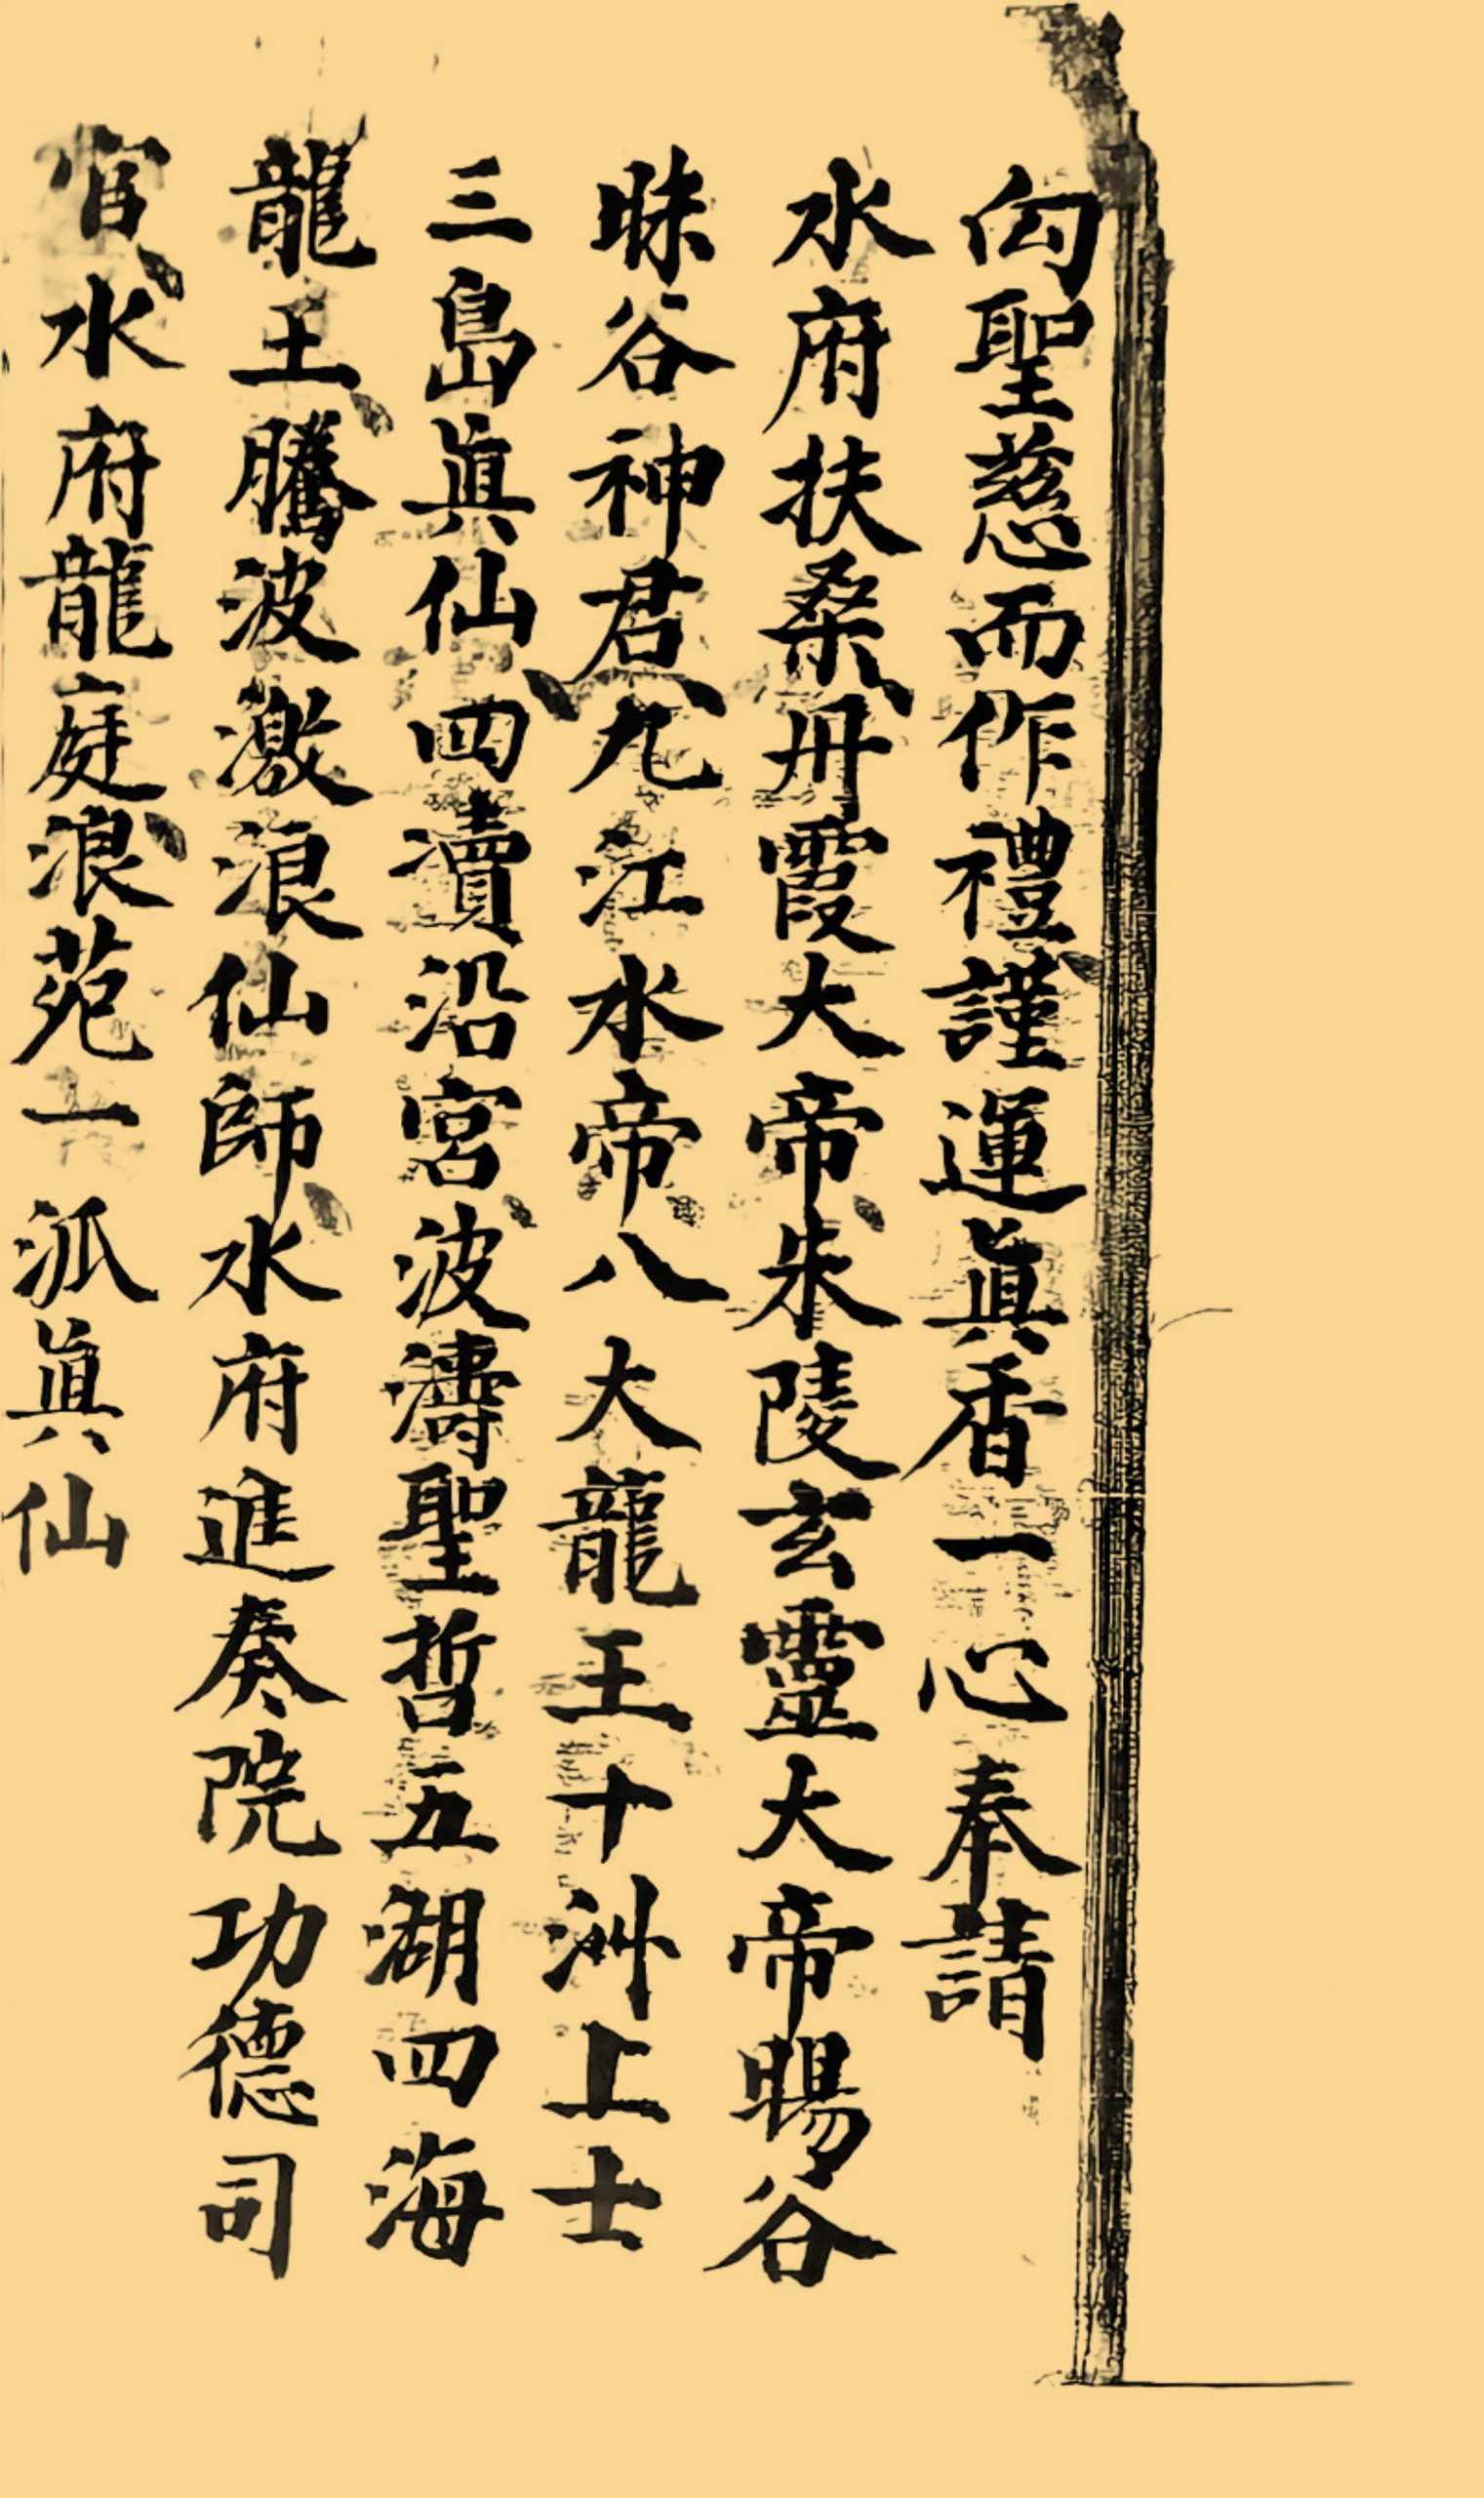 向聖慈而作禮謹運眞香一心奉請
水府扶桑丹霞大帝朱陵玄靈大帝暘谷
昧谷神君九江水帝八大龍王十洲上士
三島眞仙四瀆沿宮波濤聖哲五湖四海
龍王騰波激浪仙師水府進奏院功德司
官水府龍庭浪苑一派眞仙